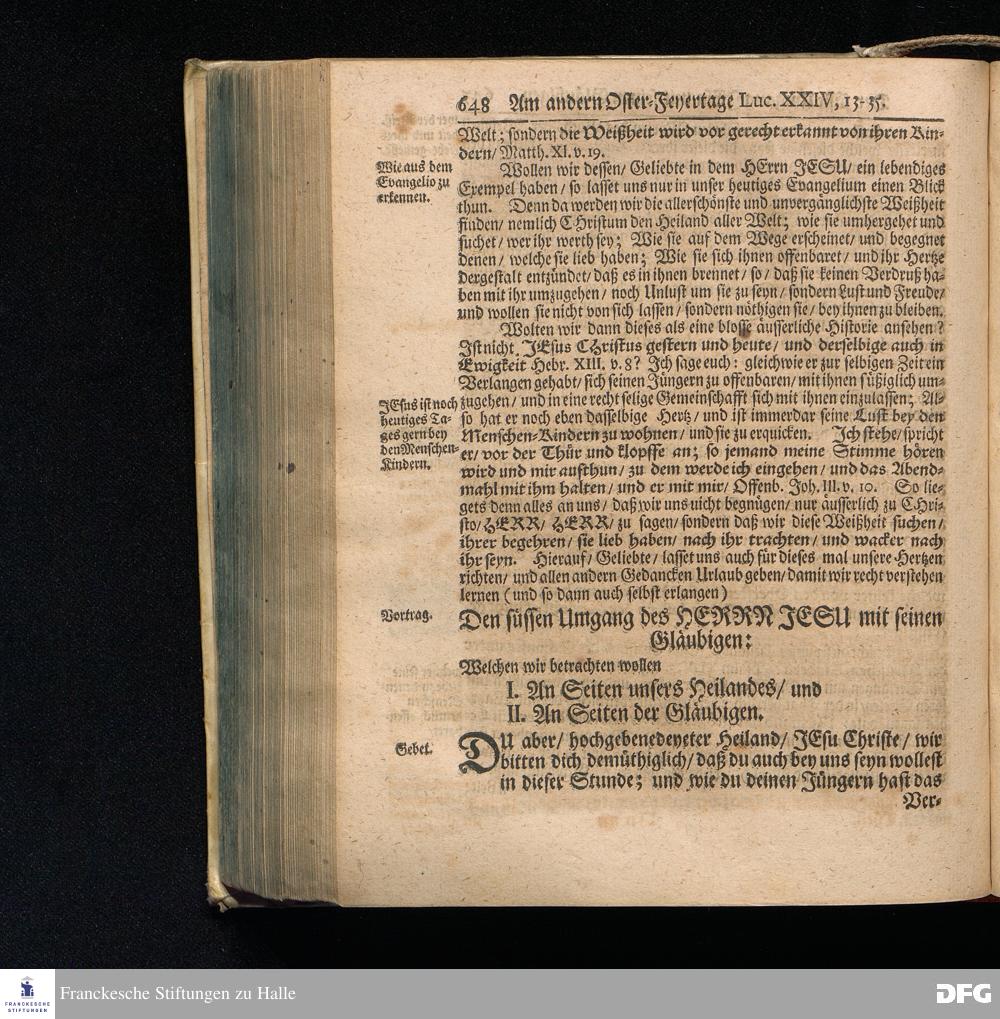 648 Am andern Oster-Feyertage Luc. XXIV, 13-35.
Welt; sondern die Weißheit wird vor gerecht erkannt von ihren Kin-
dern/ Matth. XI. v. 19.
Wie aus dem
Evangelio zu
erkennen.
Wollen wir dessen/ Geliebte in dem HErrn JESU/ ein lebendiges
Exempel haben/ so lasset uns nur in unser heutiges Evangelium einen Blick
thun. Denn da werden wir die allerschönste und unvergänglichste Weißheit
finden/ nemlich CHristum den Heiland aller Welt; wie sie umhergehet und
suchet/ wer ihr werth sey; Wie sie auf dem Wege erscheinet/ und begegnet
denen/ welche sie lieb haben; Wie sie sich ihnen offenbaret/ und ihr Hertze
dergestalt entzündet/ daß es in ihnen brennet/ so/ daß sie keinen Verdruß ha-
ben mit ihr umzugehen/ noch Unlust um sie zu seyn/ sondern Lust und Freude/
und wollen sie nicht von sich lassen/ sondern nöthigen sie/ bey ihnen zu bleiben.
Wolten wir dann dieses als eine blosse äusserliche Historie ansehen?
Ist nicht JEsus CHristus gestern und heute/ und derselbige auch in
Ewigkeit Hebr. XIII. v. 8? Ich sage euch: gleichwie er zur selbigen Zeit ein
Verlangen gehabt/ sich seinen Jüngern zu offenbaren/ mit ihnen süßiglich um-
JEsus ist noch
heutiges Ta-
ges gern bey
den Menschen-
Kindern.
zugehen/ und in eine recht selige Gemeinschafft sich mit ihnen einzulassen; Al-
so hat er noch eben dasselbige Hertz/ und ist immerdar seine Lust bey den
Menschen-Kindern zu wohnen/ und sie zu erquicken. Ich stehe/ spricht
er/ vor der Thür und klopffe an; so jemand meine Stimme hören
wird und mir aufthun/ zu dem werde ich eingehen/ und das Abend-
mahl mit ihm halten/ und er mit mir/ Offenb. Joh. III. v. 10. So lie-
gets denn alles an uns/ daß wir uns nicht begnügen/ nur äusserlich zu CHri-
sto/ HERR/ HERR/ zu sagen/ sondern daß wir diese Weißheit suchen/
ihrer begehren/ sie lieb haben/ nach ihr trachten/ und wacker nach
ihr seyn. Hierauf/ Geliebte/ lasset uns auch für dieses mal unsere Hertzen
richten/ und allen andern Gedancken Urlaub geben/ damit wir recht verstehen
lernen (und so dann auch selbst erlangen)
Vortrag.
Den süssen Umgang des HERRN JESU mit seinen
Gläubigen:
Welchen wir betrachten wollen
I. An Seiten unsers Heilandes/ und
II. An Seiten der Gläubigen.
Gebet.
DU aber/ hochgebenedeyeter Heiland/ JEsu Christe/ wir
bitten dich demüthiglich/ daß du auch bey uns seyn wollest
in dieser Stunde; und wie du deinen Jüngern hast das
Ver-
FRANCKESCHE
STIFTUNGEN
Franckesche Stiftungen zu Halle
DFG